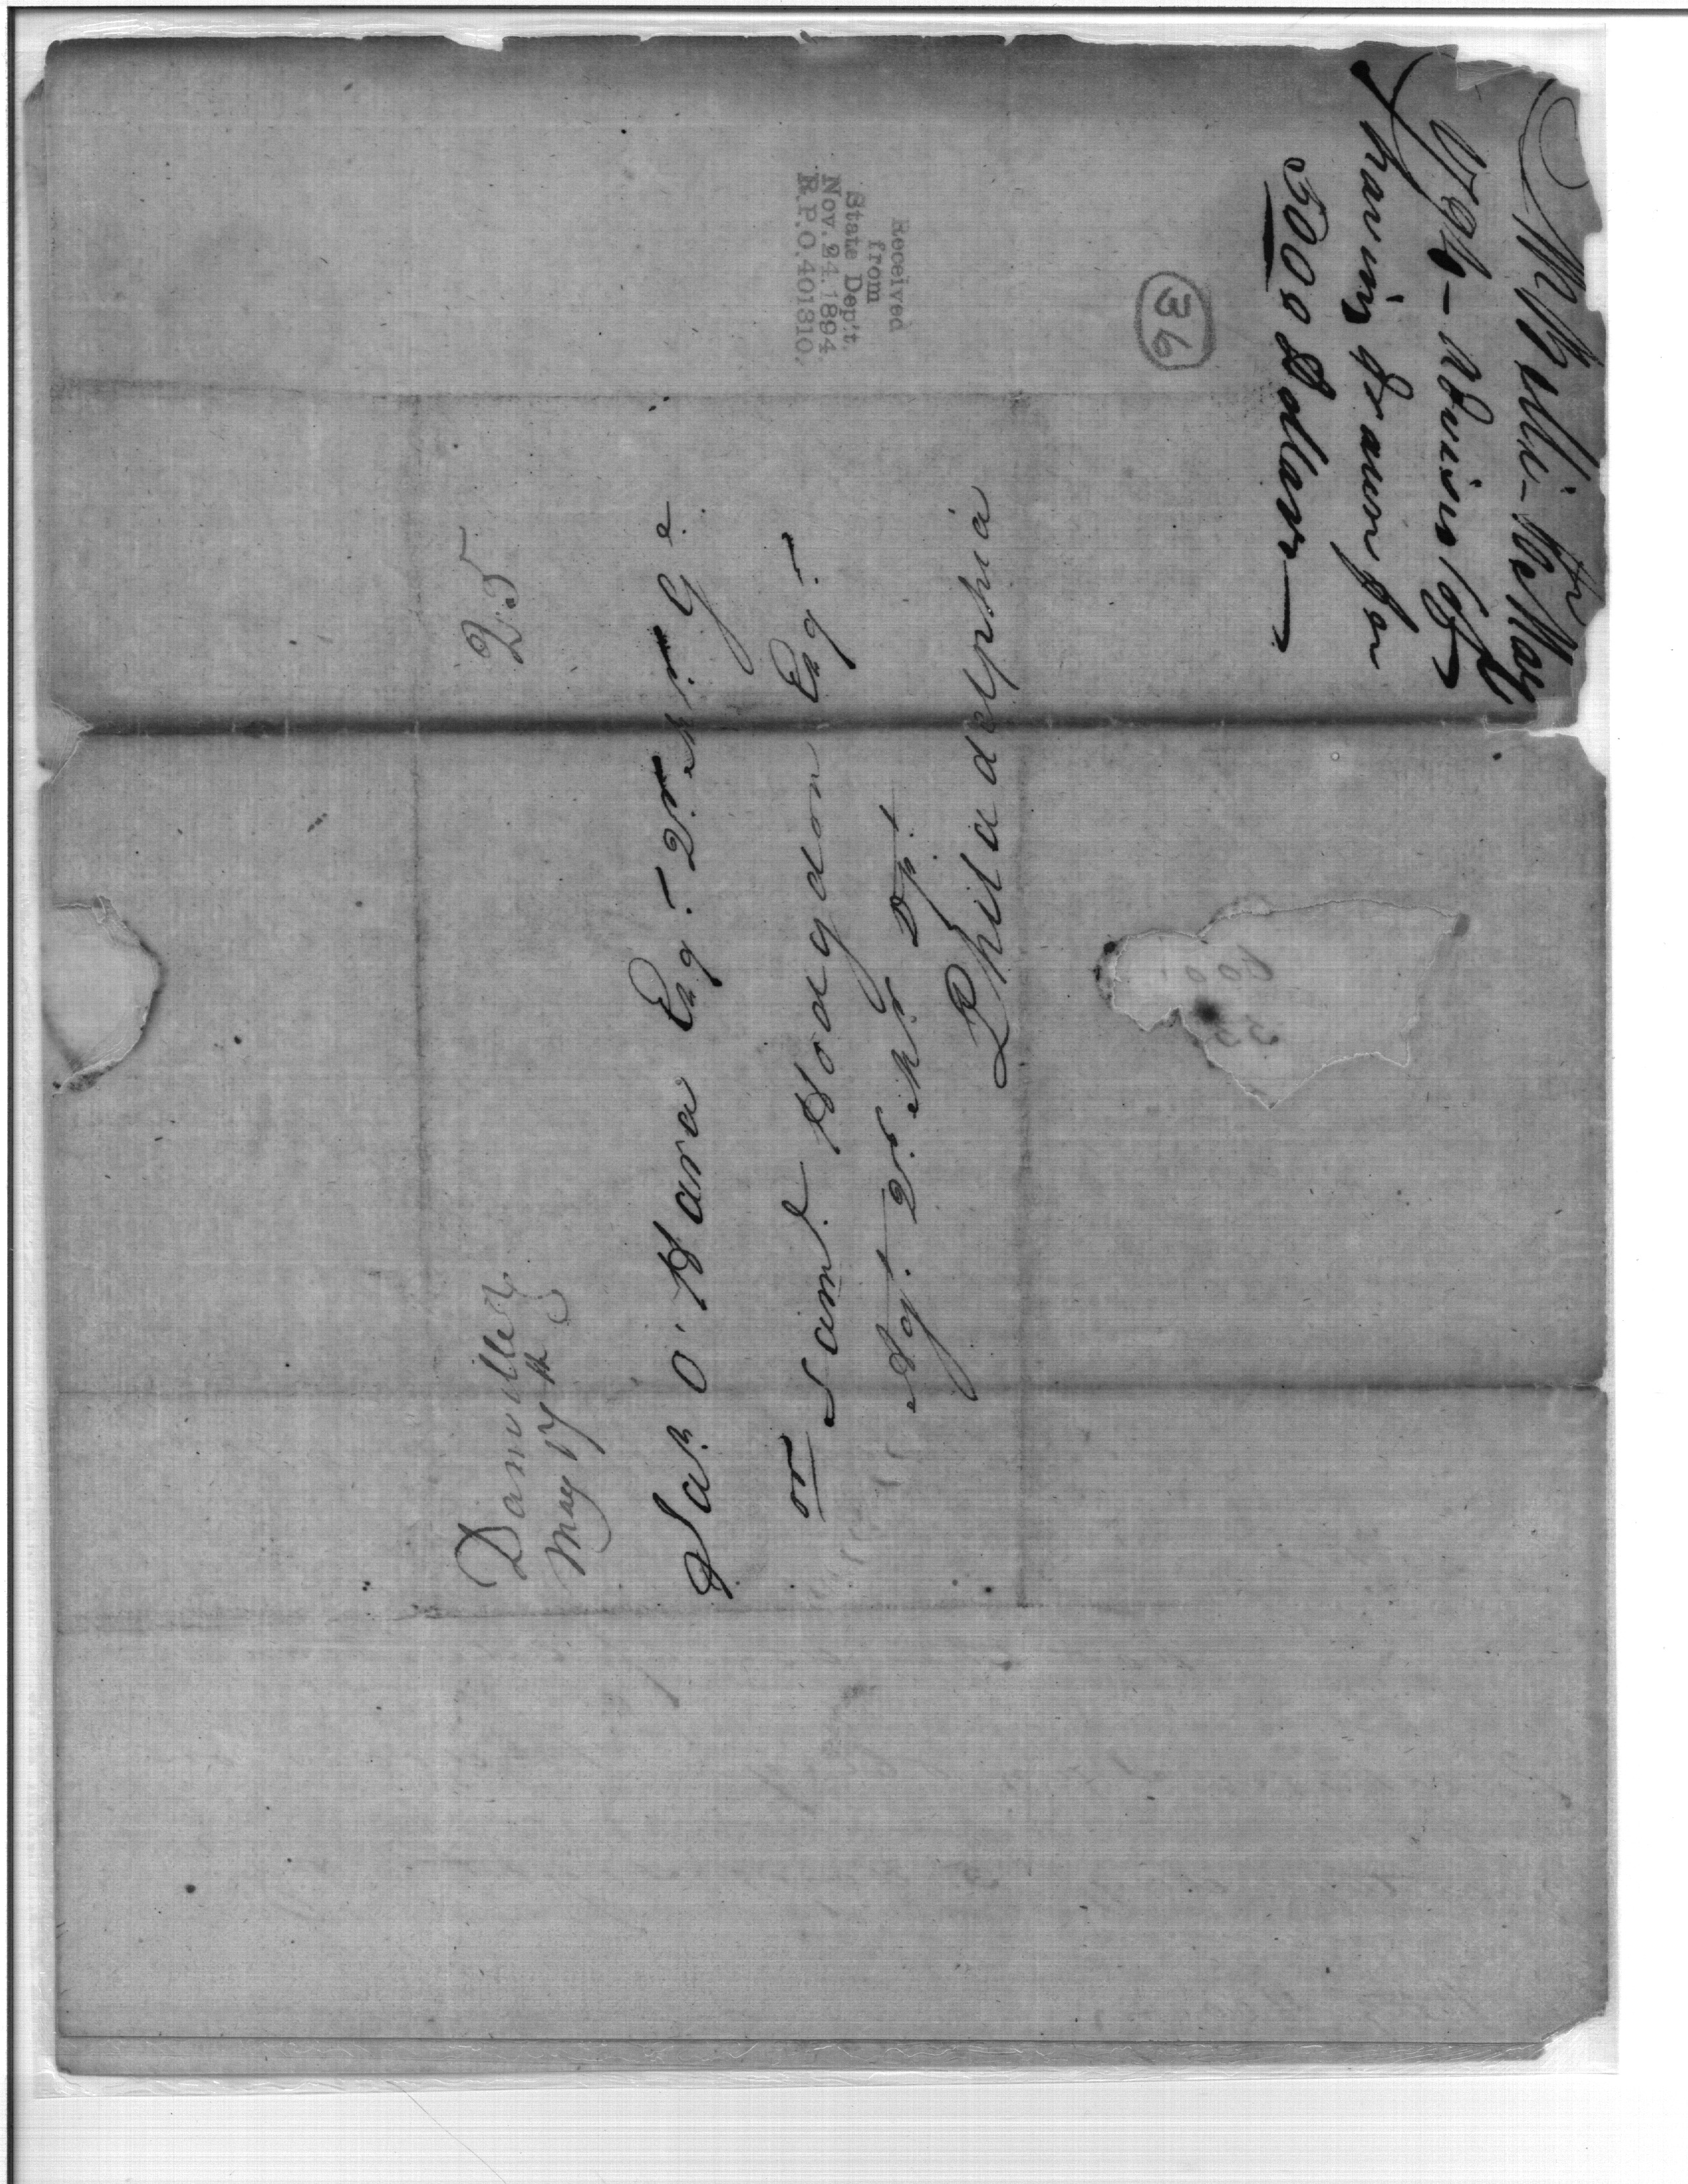 Danville Ky
May 17th
25
Jas. O'Hara Esqr. Qr. Mr. Ge.
or Saml. Hodgdon Esqr.
Agt. Qr. Mr. Dpt.
Philadelphia
May
1796 - advising of
having drawn for
3000 Dollars
36
Received
from
State Dep't.
Nov. 24. 1894.
R.P.O. 401310.